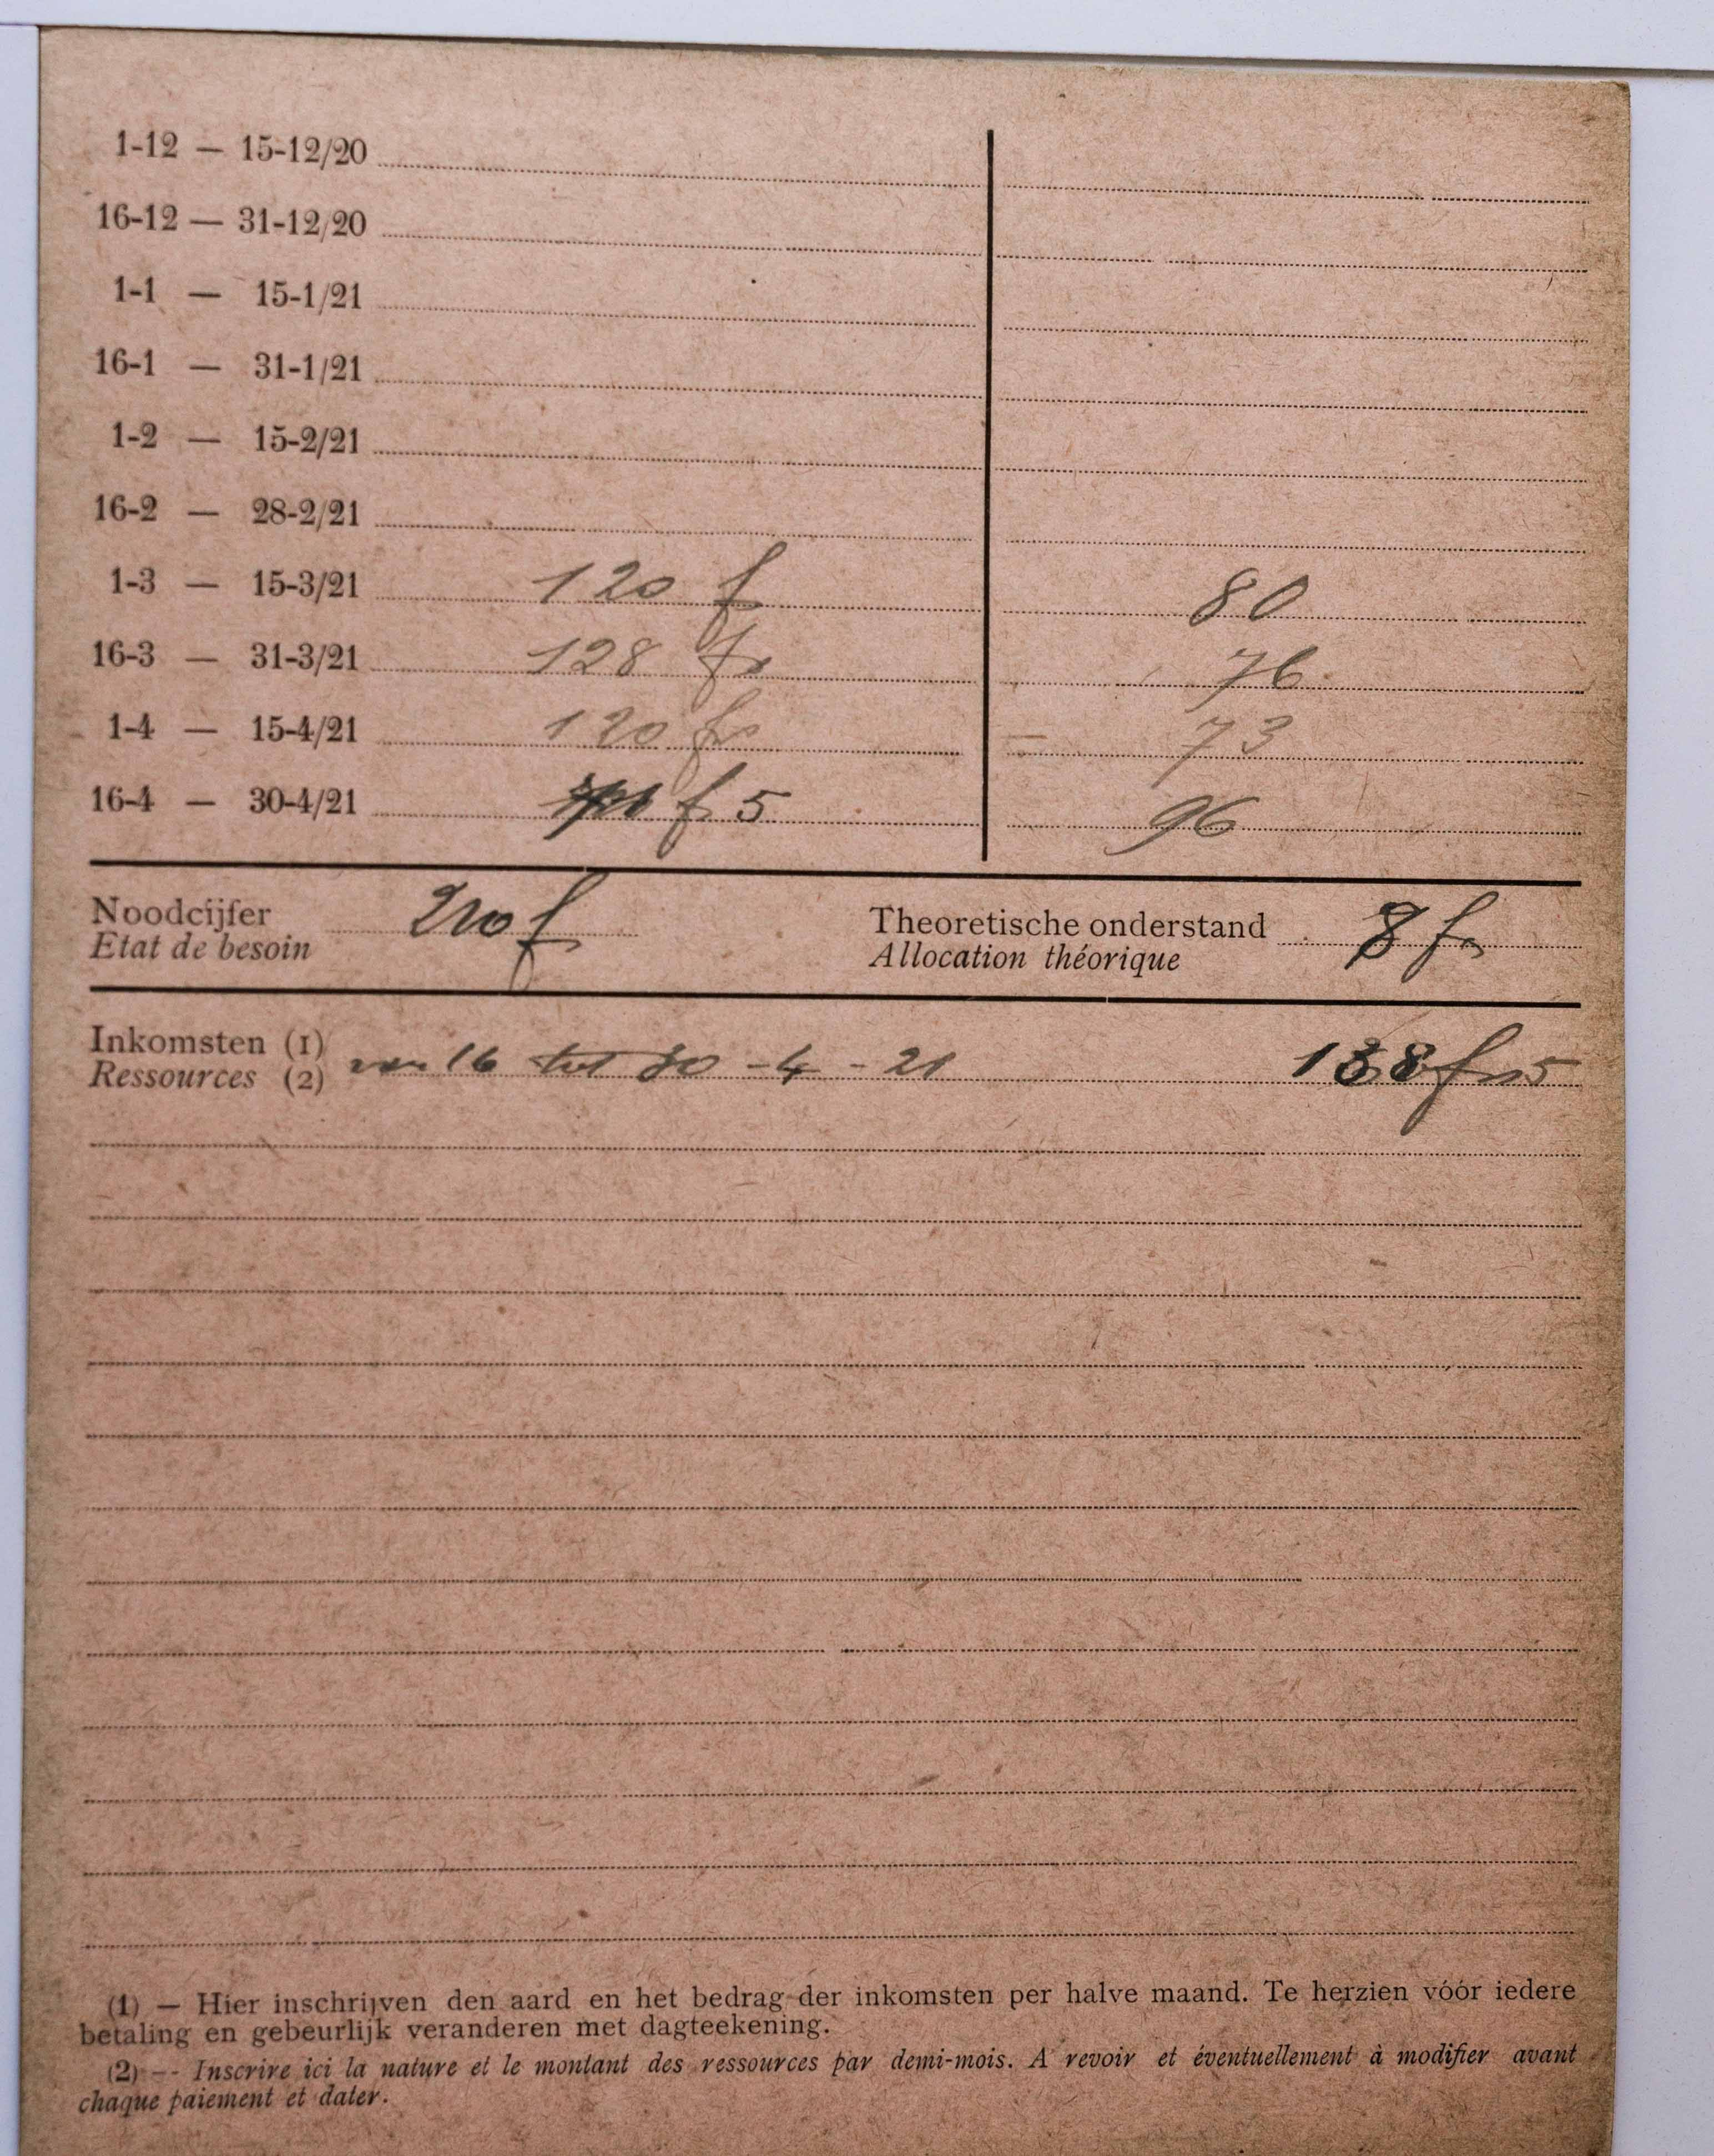 1-12 — 15-12/20
16-12 — 31-12/20
1-1 — 15-1/21
16-1 — 31-1/21
1-2 — 15-2/21
16-2 — 28-2/21
1-3 — 15-3/21 120 f 80
16-3 — 31-3/21 128 fr 76
1-4 — 15-4/21 120 fr 73
16-4 — 30-4/21 fr 5 96
Noodcijfer
Etat de besoin
Theoretische onderstand 8 fr
Allocation théorique
Inkomsten (1)
Ressources (2) van 16 tot 30 - 4 - 21 138 fr 5
(1) — Hier inschrijven den aard en het bedrag der inkomsten per halve maand. Te herzien vóór iedere
betaling en gebeurlijk veranderen met dagteekening.
(2) -- Inscrire ici la nature et le montant des ressources par demi-mois. A revoir et éventuellement à modifier avant
chaque paiement et dater.